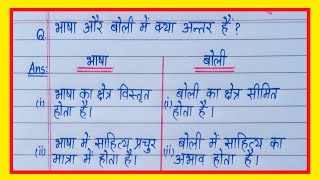 Q. भाषा और बोली में क्या अन्तर हैं?
Ans: भाषा बोली
(i) भाषा का क्षेत्र विस्तृत (i) बोली का क्षेत्र सीमित
होता है। होता है।
(ii) भाषा में साहित्य प्रचुर (ii) बोली में साहित्य का
मात्रा में होता है। अभाव होता है।